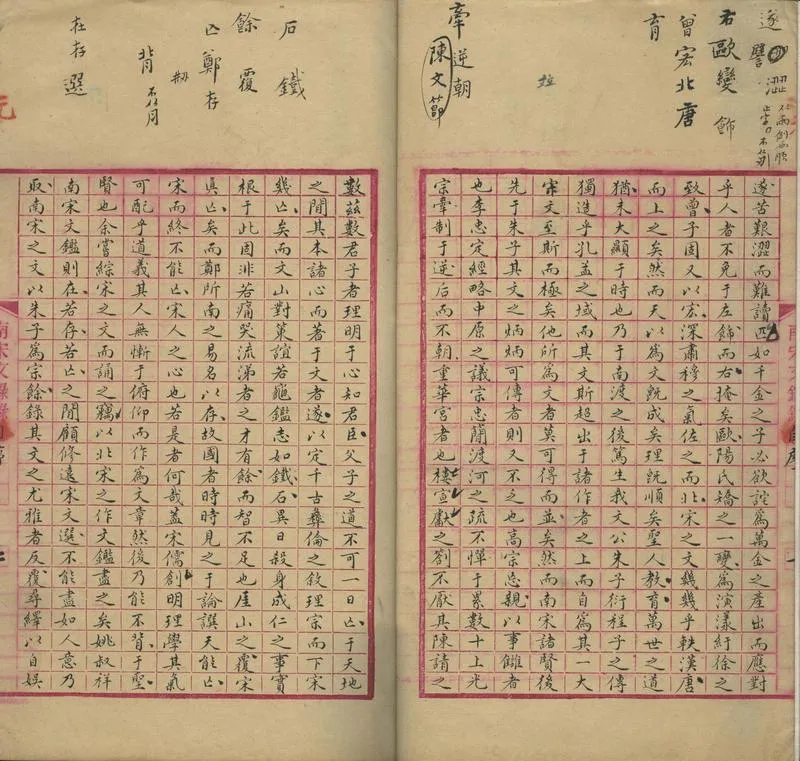 遂譬澀
右歐變飾
曾宏北唐
育
牽逆朝
陳文節
遂苦艱澀而難讀匹如千金之子必欲詫為萬金之產出而應對
乎人者不免于左飾而右掩矣歐陽氏矯之一變為演漾紆徐之
致曾子固又以宏深肅穆之氣佐之而北宋之文幾幾乎軼漢唐
而上之矣然而天以為文既成矣理既順矣聖人教育萬世之道
猶未大顯于時也乃于南渡之後篤生我文公朱子衍程子之傳
獨造乎孔孟之域而其文斯超出于諸作者之上而自為其一大
宋文至斯而極矣他所為文者莫可得而並矣然而南宋諸賢後
先于朱子其文之炳炳可傳者則又不乏也高宗忘親以事讎者
也李忠定經略中原之議宗忠簡渡河之疏不憚于累數十上光
宗牽制于逆后而不朝重華宮者也樓宣獻之劄不厭其陳請之
石鐵
餘覆
亡鄭存
背
在存選
數茲數君子者理明于心知君臣父子之道不可一日亡于天地
之間其本諸心而著于文者遂以定千古彝倫之敘理宗而下宋
幾亡矣而文山對策誼若龜鑑志如鐵石異日殺身成仁之事實
根于此固非若痛哭流涕者之才有餘而智不足也厓山之覆宋
真亡矣而鄭所南之易名以存故國者時時見之于論譔天能亡
宋而終不能亡宋人之心也若是者何哉蓋宋儒創明理學其氣
可配乎道義其人無慚于俯仰而作為文章然後乃能不背于聖
賢也余嘗綜宋之文而誦之竊以北宋之作文鑑盡之矣姚叔祥
南宋文鑑則在若存若亡之間顧修遠宋文選不能盡如人意乃
取南宋之文以朱子為宗餘錄其文之尤雅者反覆尋繹以自娛